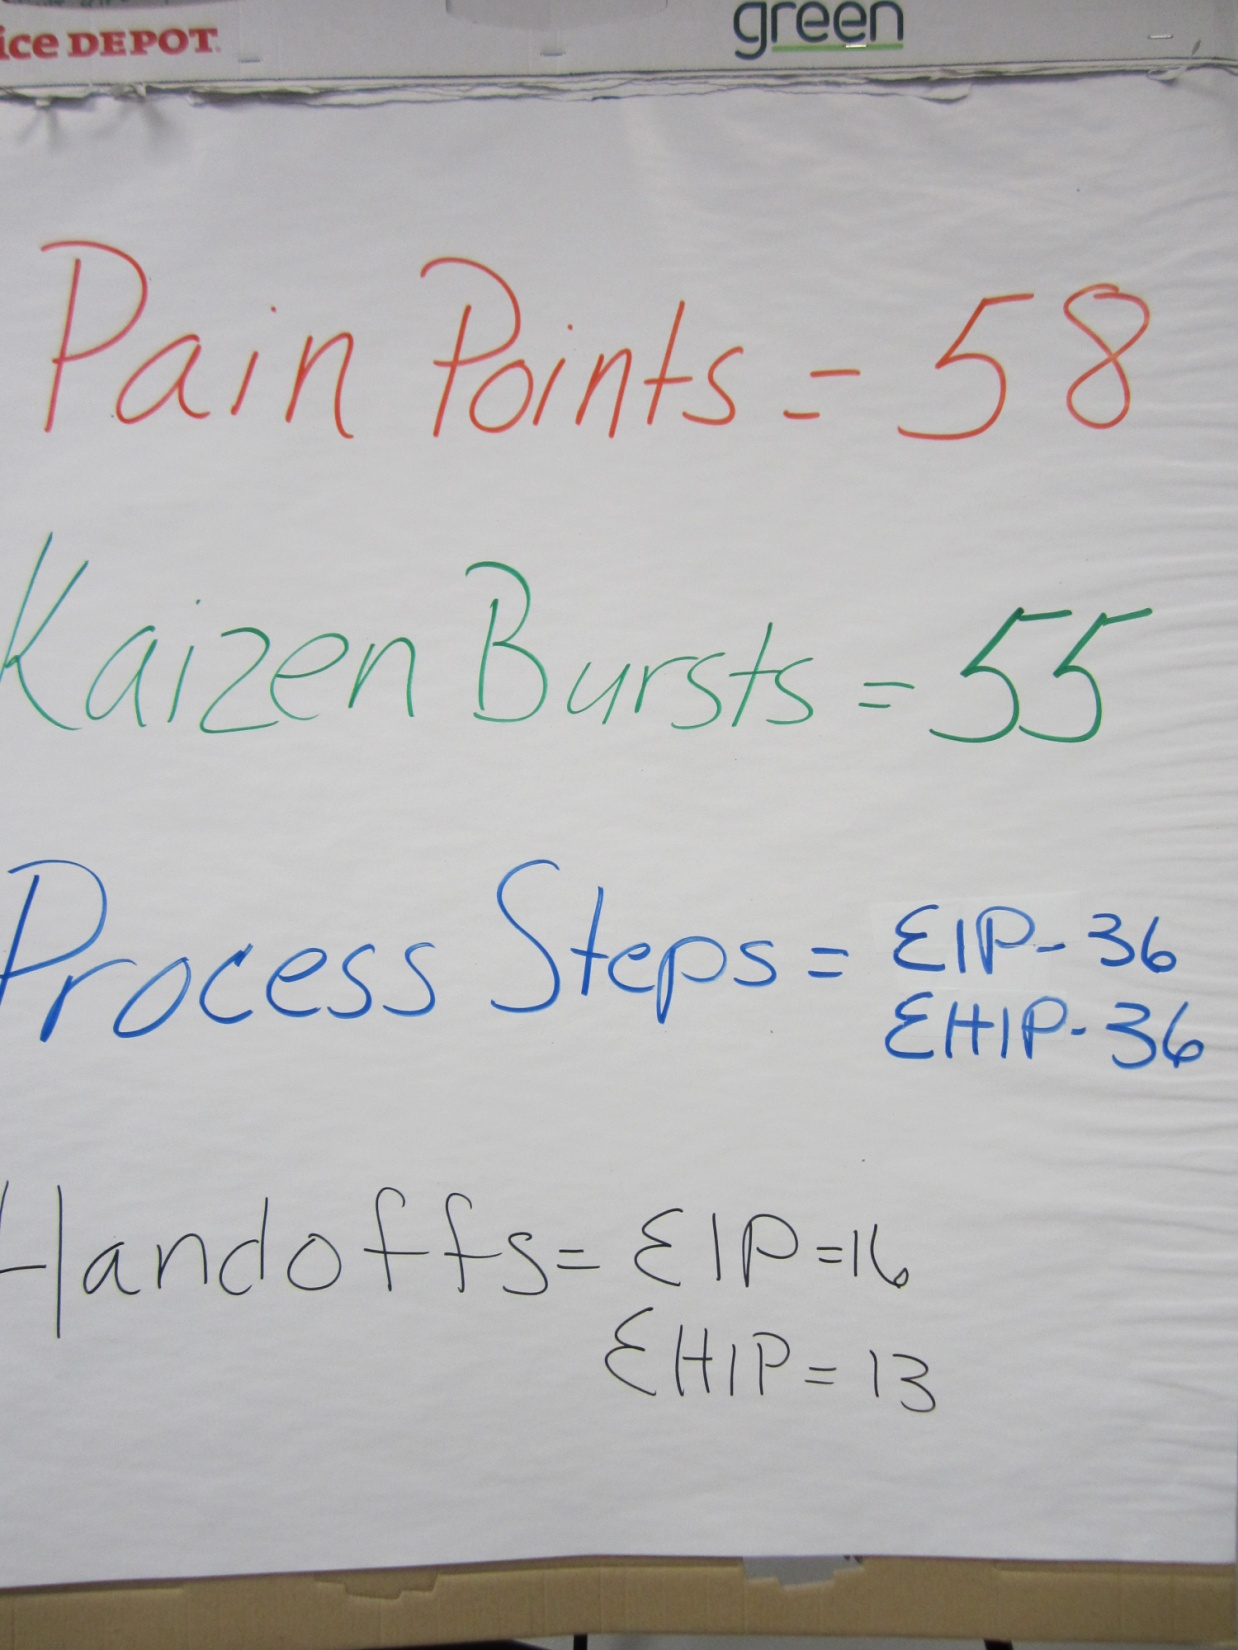 ice DEPOT
green
Pain Points = 58
Kaizen Bursts = 55
Process Steps = EIP- 36
EHIP- 36
Handoffs = EIP = 16
EHIP = 13